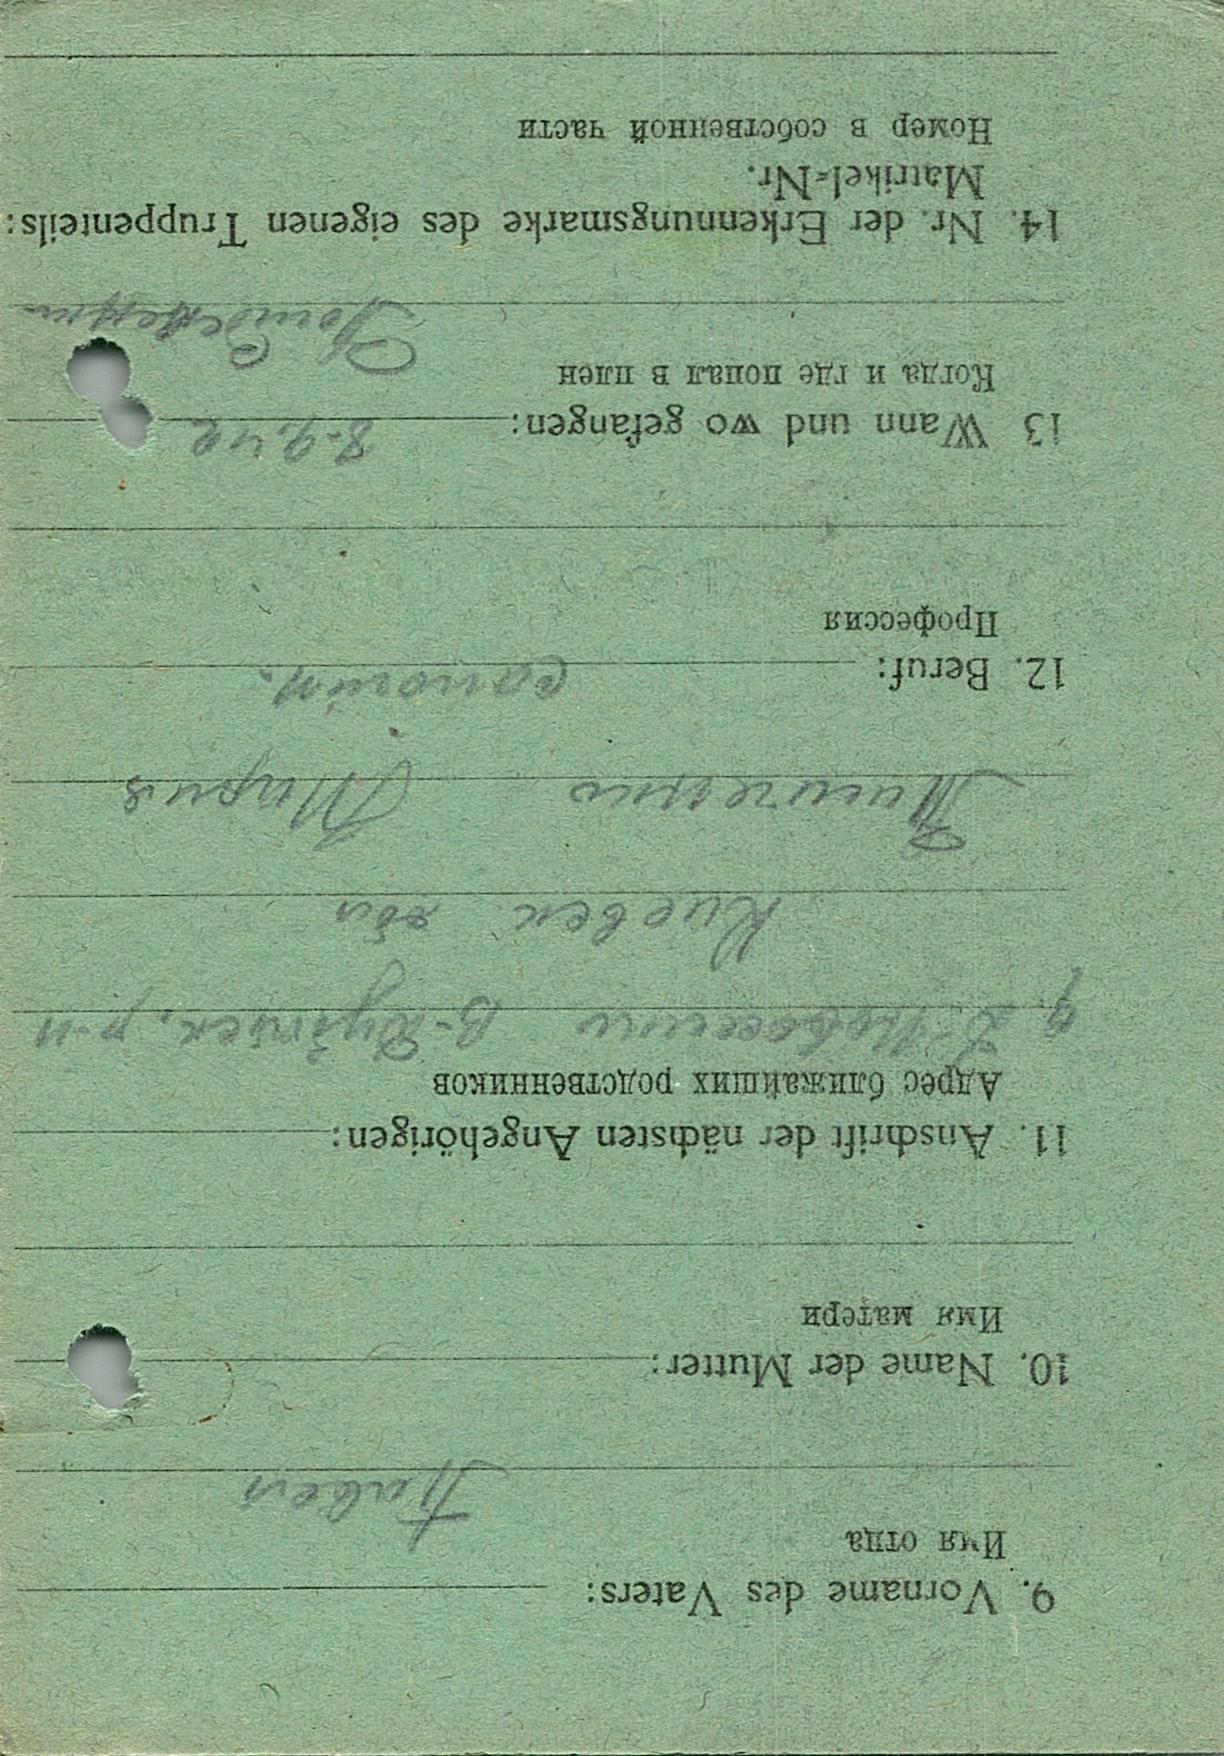 9. Vorname des Vaters:
Имя отца
Павел
10. Name der Mutter:
Имя матери
11. Anschrift der nächsten Angehörigen:
Адрес ближайших родственников
р-н
Киевск обл
Мария
12. Beruf:
Профессия
13 Wann und wo gefangen: 8.9.42
Когда и где попал в плен
14. Nr. der Erkennungsmarke des eigenen Truppenteils:
Matrikel-Nr.
Номер в собственной части